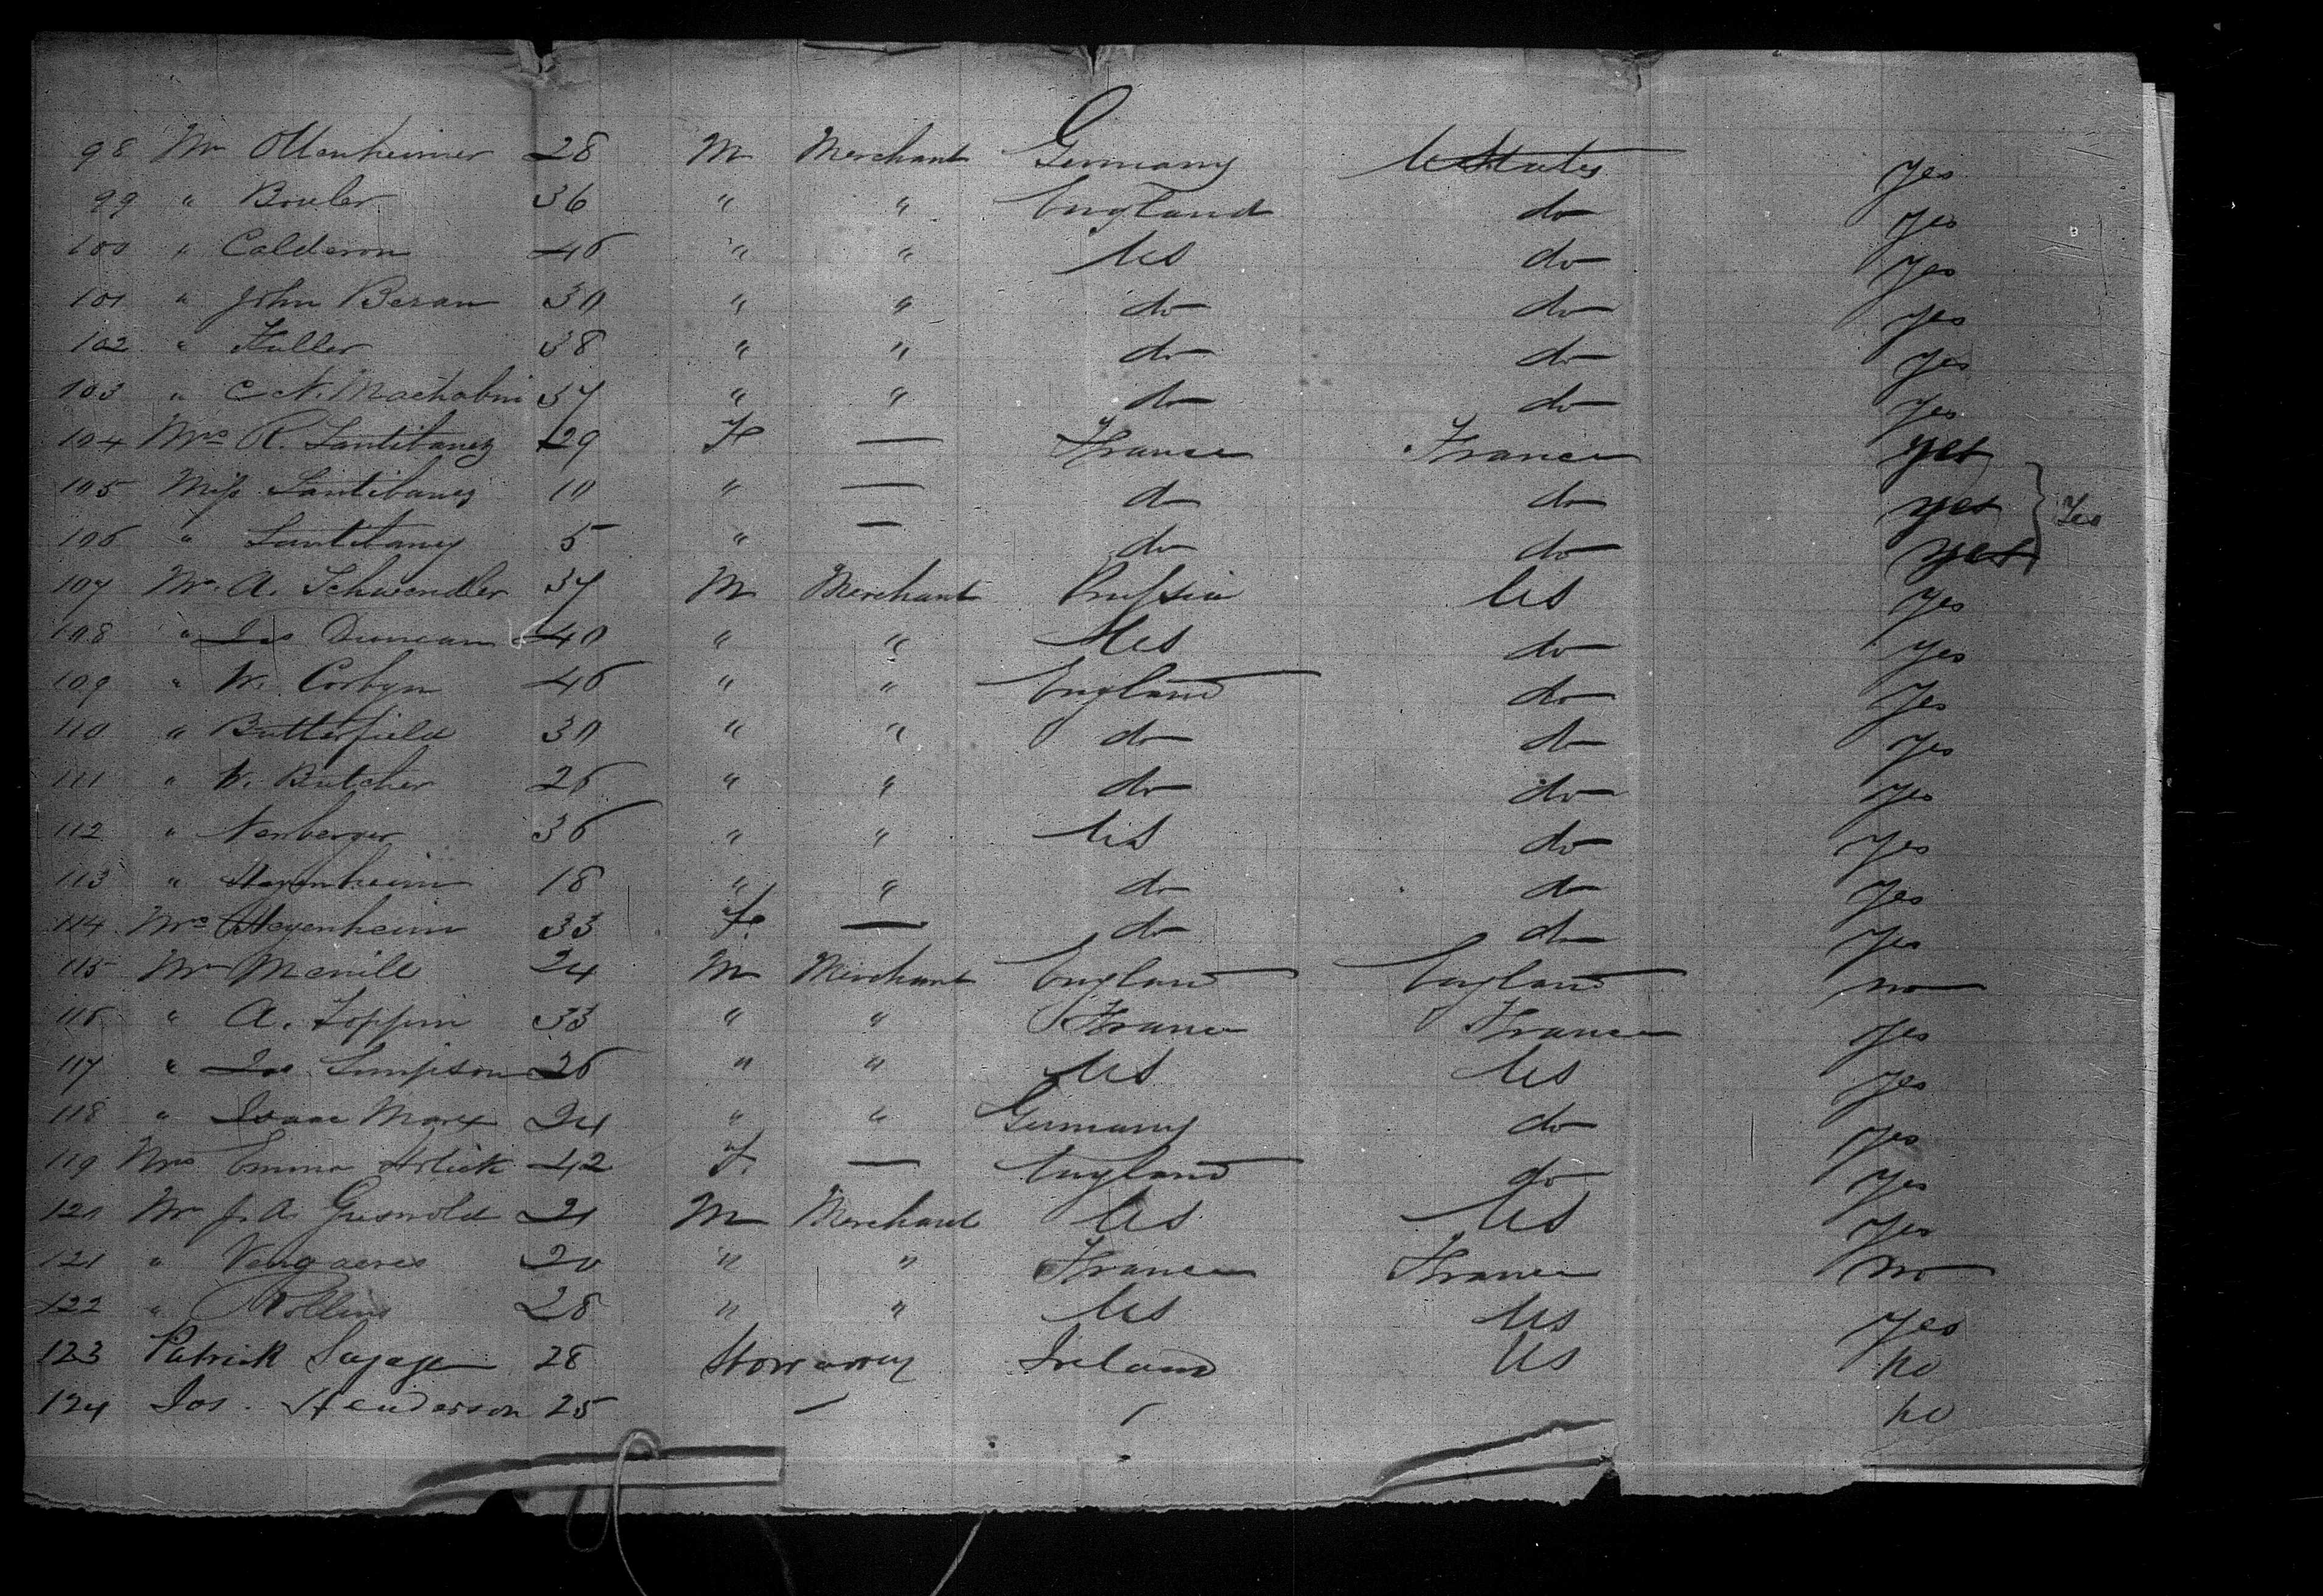 98 Mr Ottenheimer 28 M Merchant Germany U States yes
99 " Bouler 36 " " England do yes
100 " Calderon 46 " " US do yes
101 " John Beran 30 " " do do yes
102 " Fuller 38 " " do do yes
103 " C. N. 37 " " do do yes
104 Mrs R. Santibanez 29 F. — France France yes
105 Miss Santibanez 10 " — do do yes } Yes
106 " Santibanez 5 " — do do yes
107 Mr. A. Schwendler 37 M Merchant Prussia US yes
108 " Jas Duncan 40 " " US do yes
109 " W. Corbyn 46 " " England do yes
110 " Butterfield 30 " " do do yes
111 " W. Butcher 26 " " do do yes
112 " Nenberger 36 " " US do yes
113 " Heyenheim 18 " " do do yes
114 Mrs Heyenheim 33 F. — do do yes
115 Mr Merrill 24 M Merchant England England no
116 " A. Toppim 33 " " France France yes
117 " Jas Simpson 26 " " US US yes
118 " Isaac Marx 24 " " Germany do yes
119 Mrs Emma 42 F. — England do yes
120 Mr J. A. Griswold 21 M Merchant US US yes
121 " 20 " " France France no
122 " Rollins 28 " " US US yes
123 Patrick Savage 28 Stowaway Ireland US no
124 Jos. Henderson 25 — no